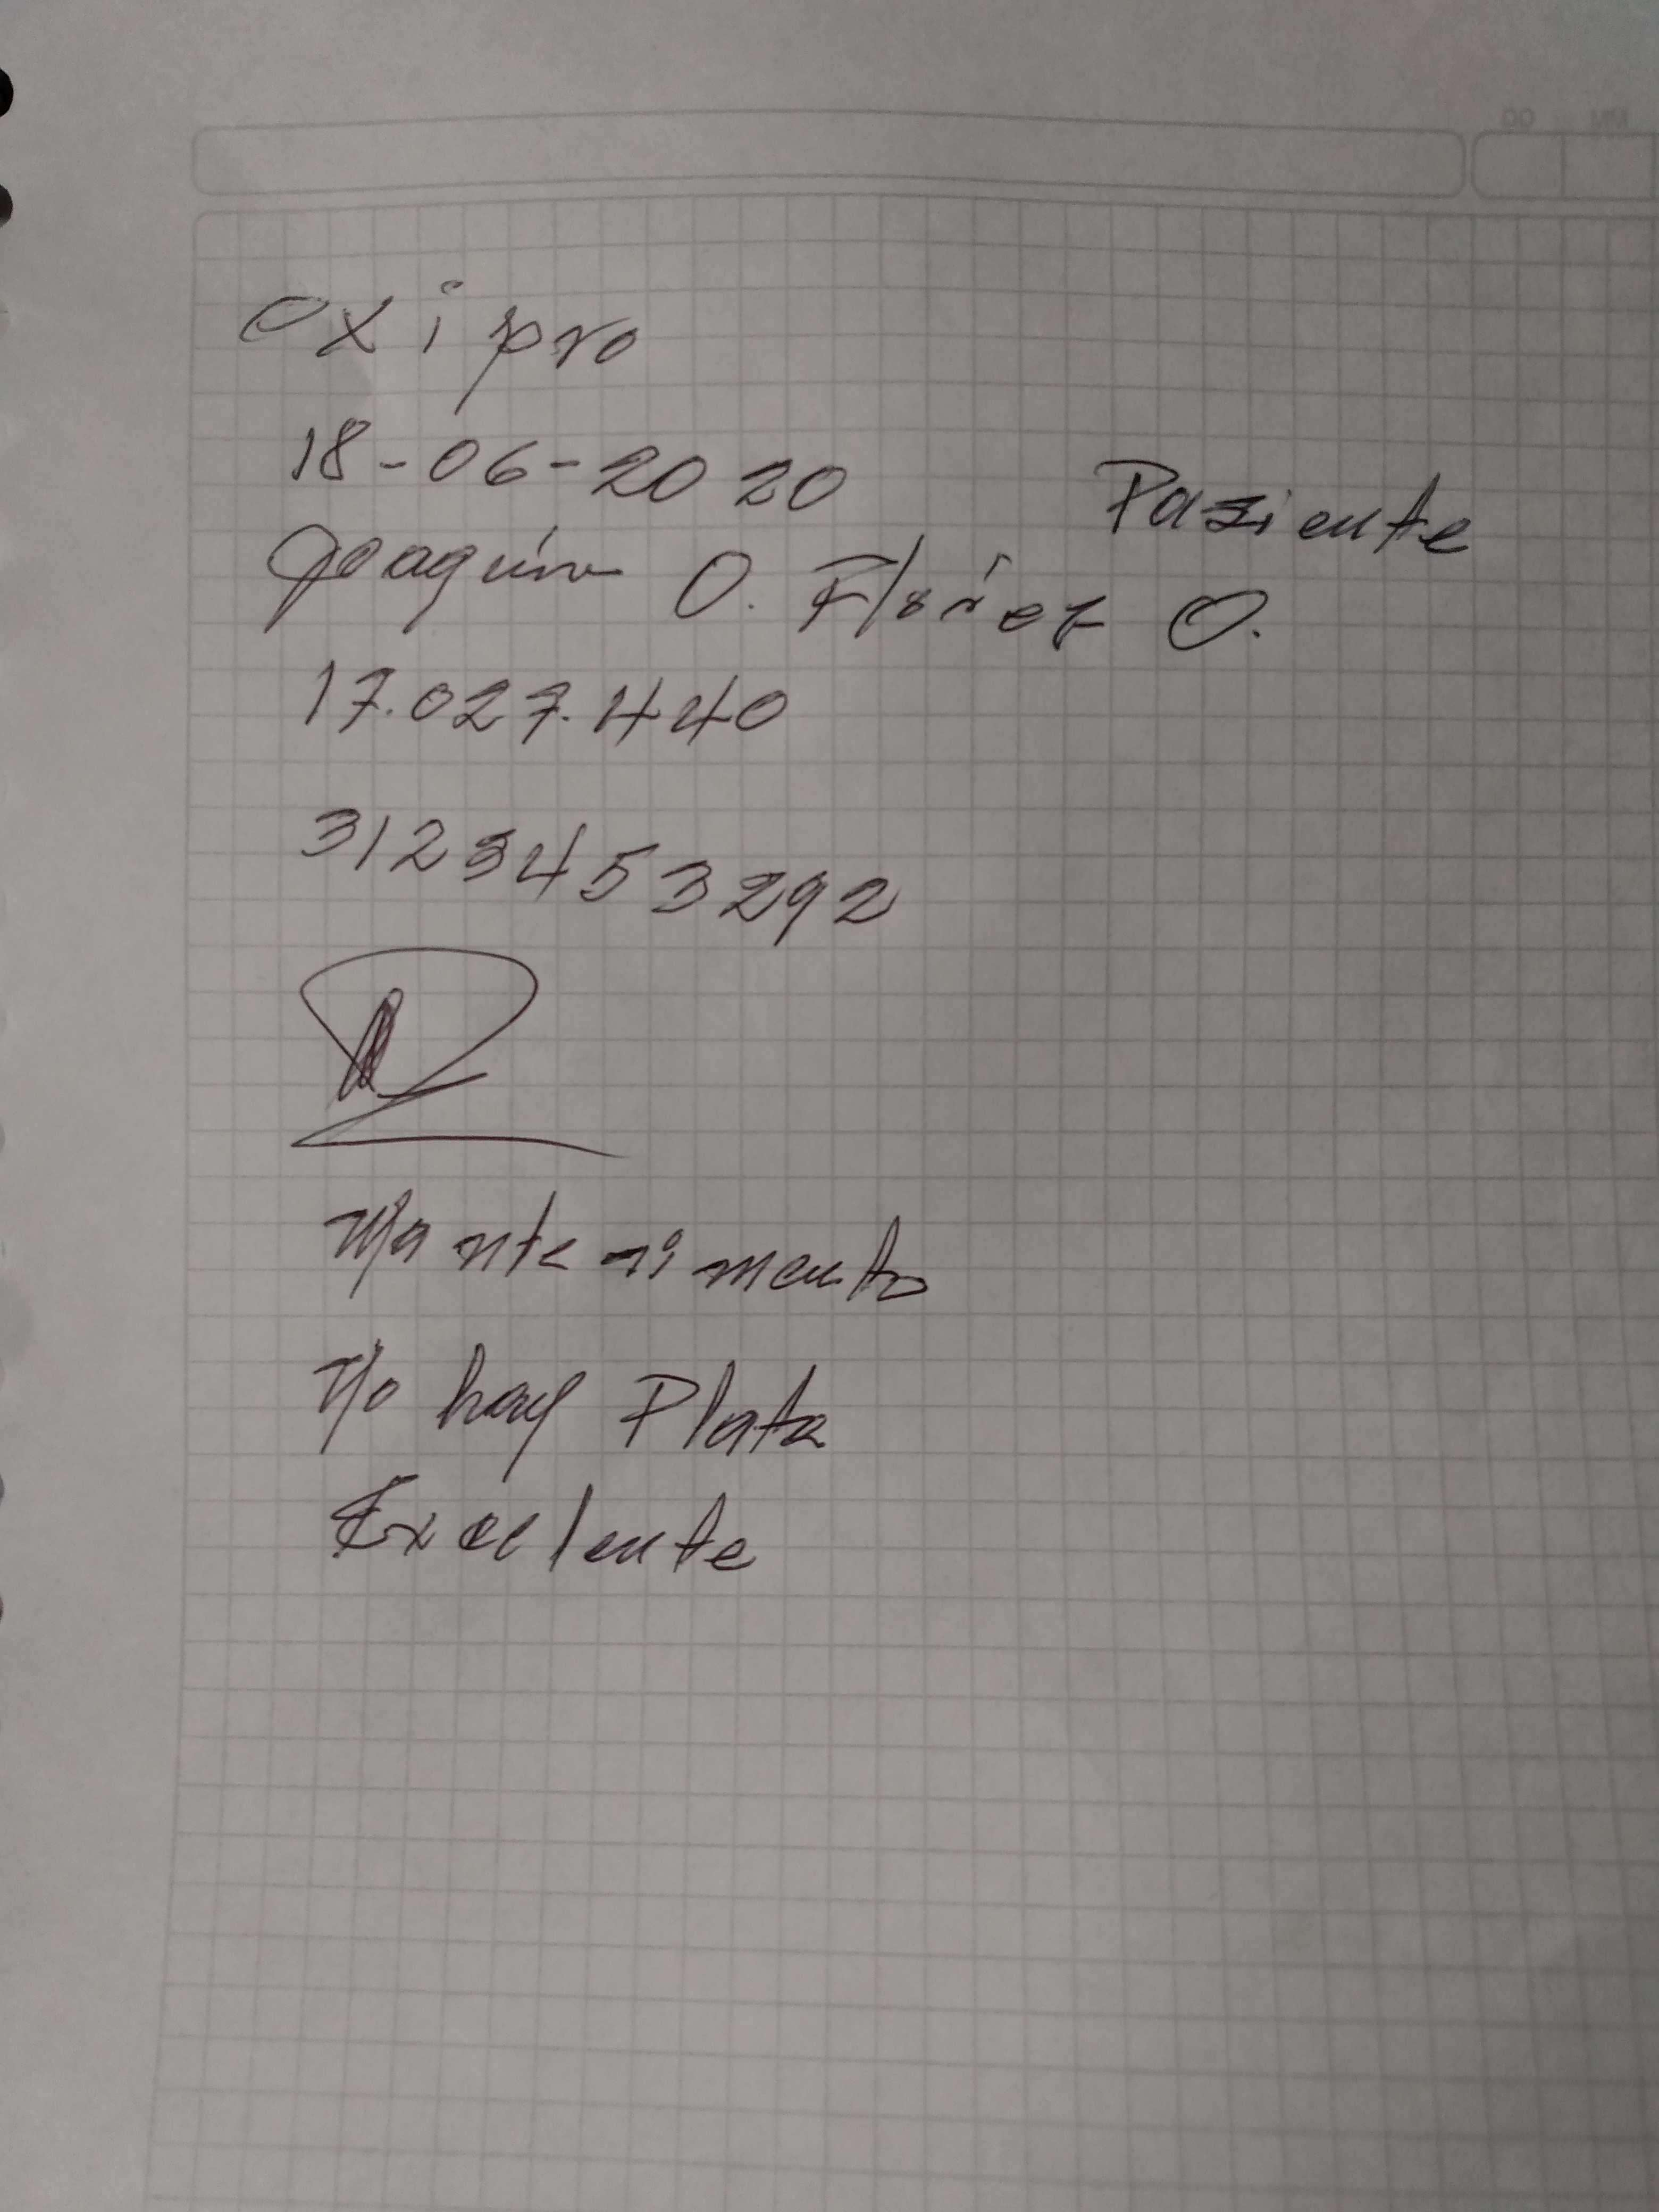 oxi pro
18-06-2020
Paziente
Joaquín O. Flórez O.
17.027.440
3123453292
Mantenimento
No hay Plata
Excelente